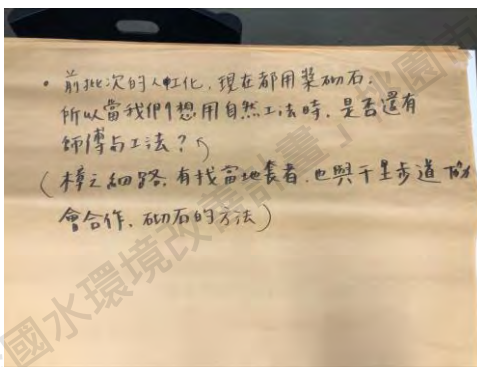 • 前批次的人虹化，現在都用漿砌石，
所以當我們想用自然工法時，是否還有
師傅与工法？
（樟之細路，有找當地耆老，也與千里步道協
會合作，砌石的方法）
國水環境改善計畫」桃園市